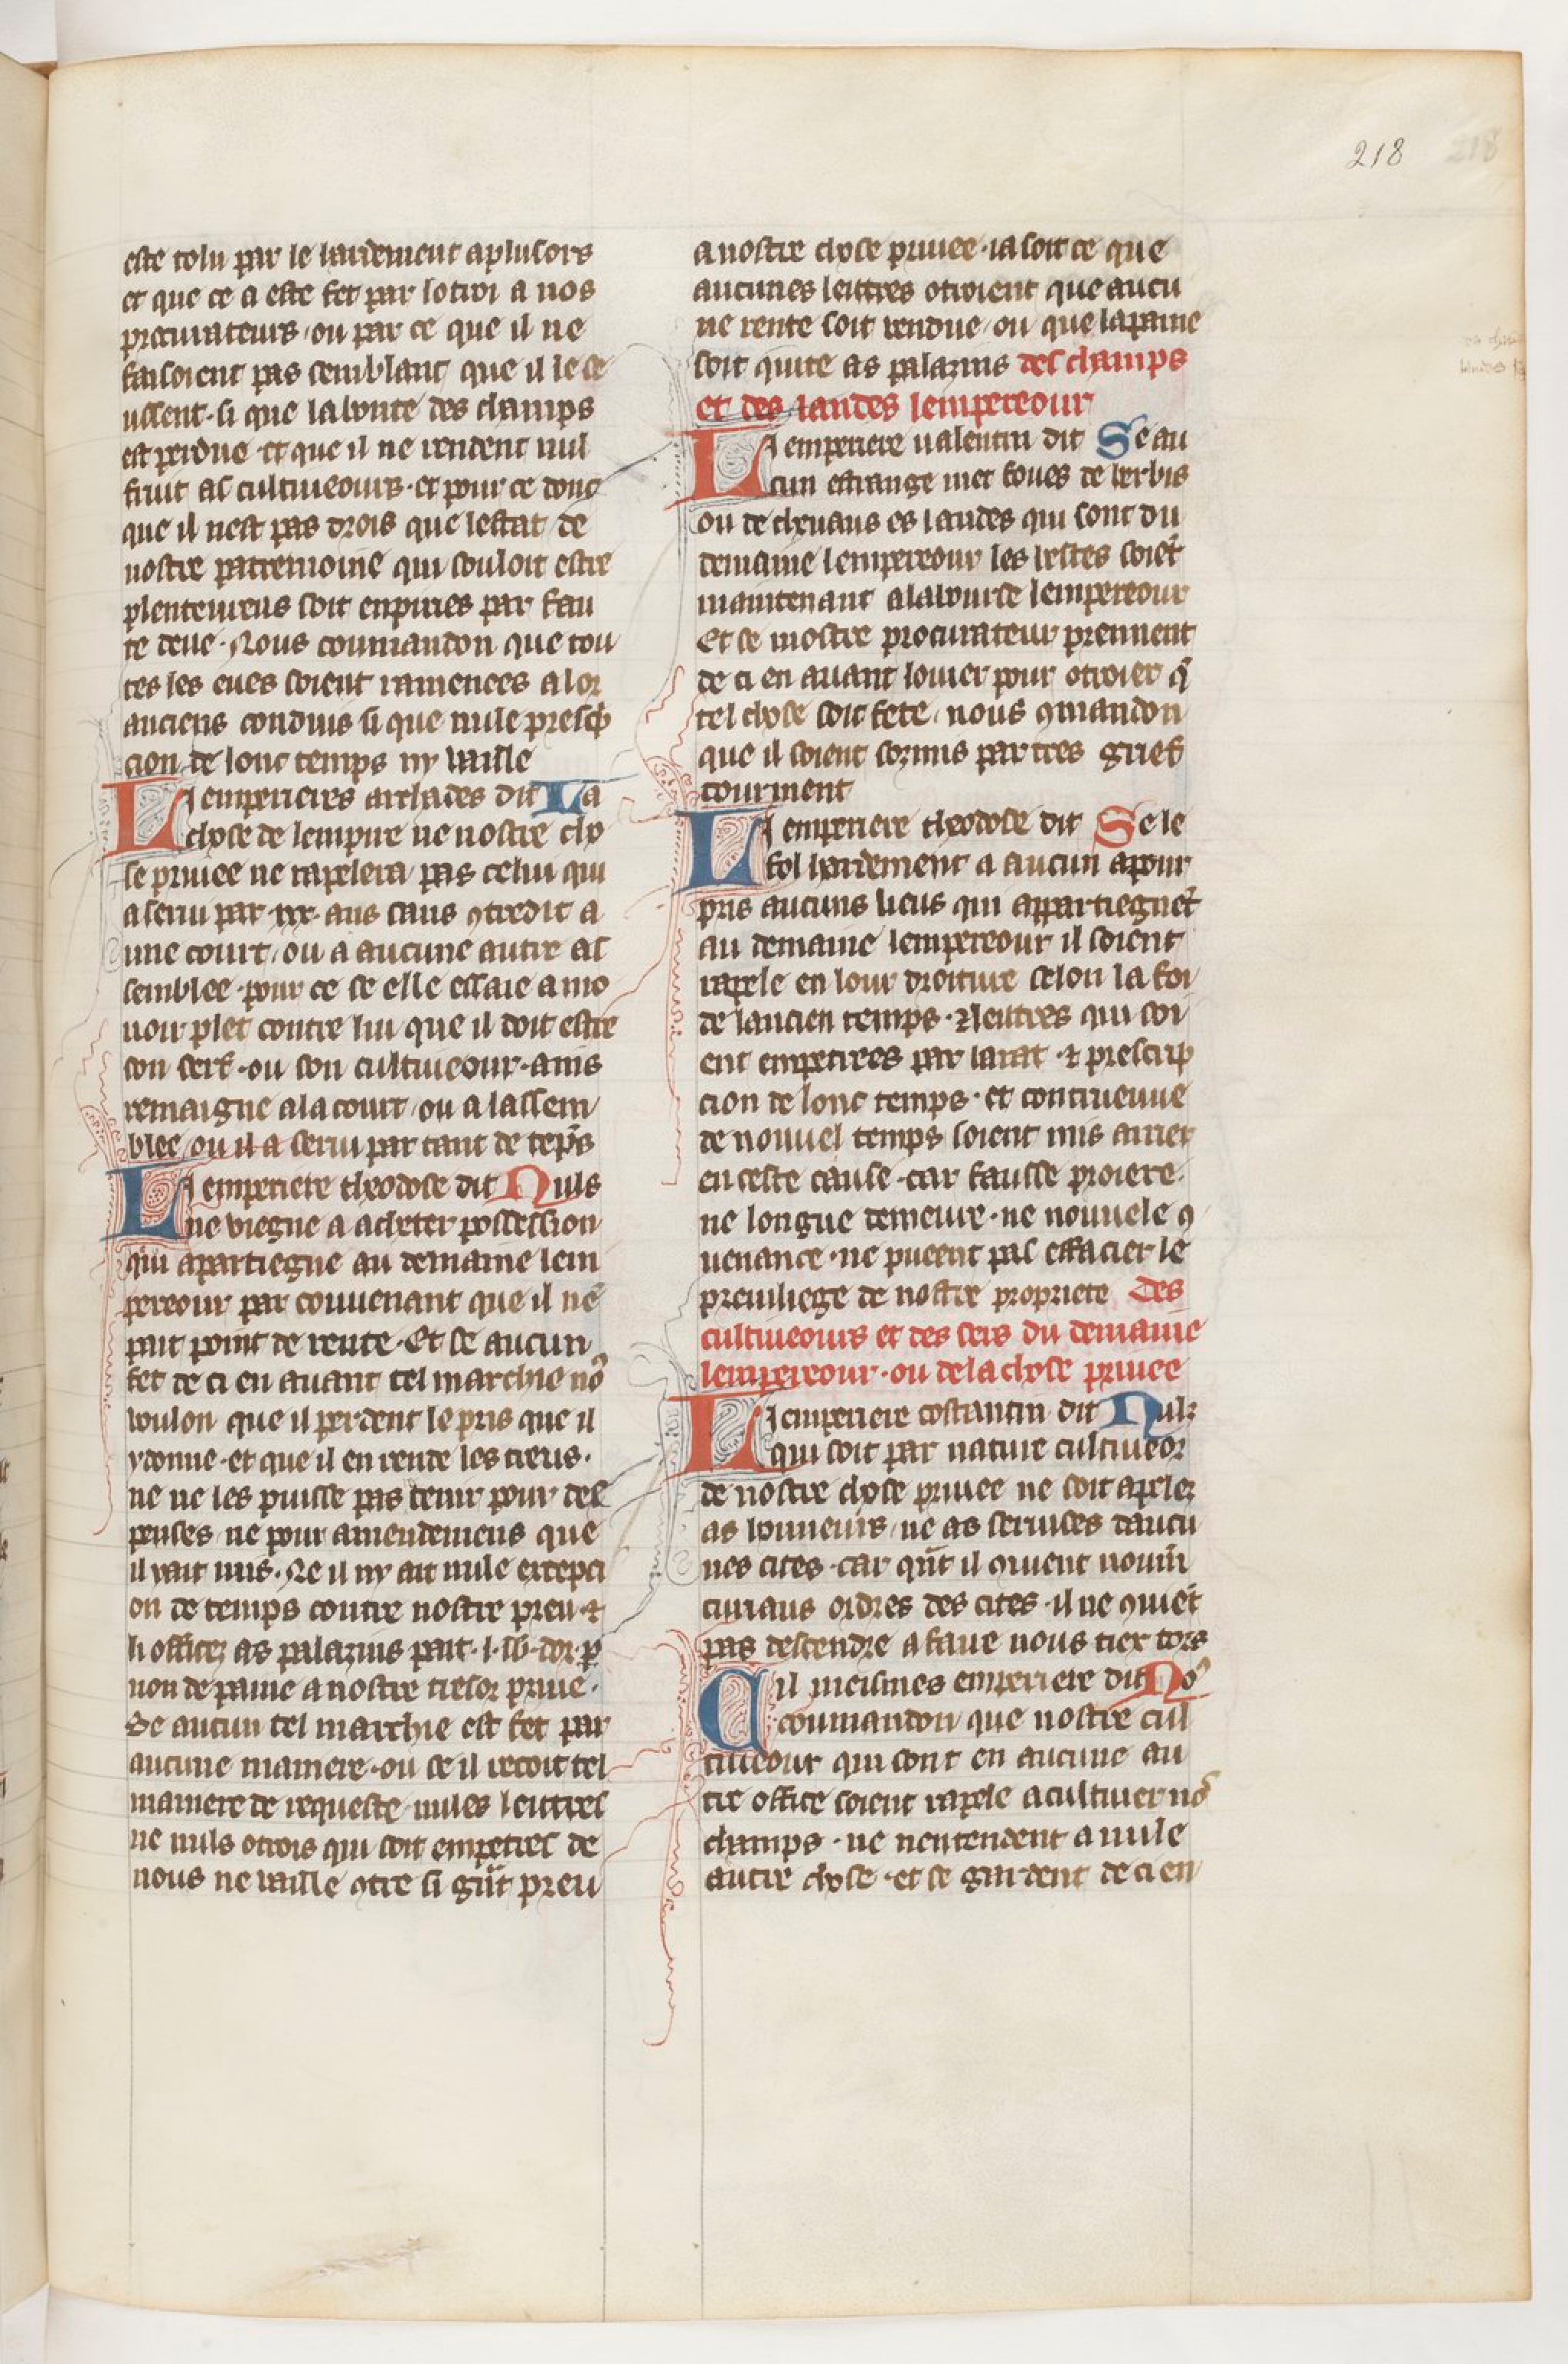 218
este tolu par le hardement a plusors
et que ce a este fet par lotroi a nos
procurateurs ou par ce que il ne
faisoient pas semblant que il le se
ussent. si que la bonte des champs
est perdue et que il ne rendent nul
fruit as cultiueours. et pour ce donc
que il nest pas drois que lestat de
nostre patremoine qui souloit estre
plenteureus soit enpiries par fau
te deue. Nous coumandon que tou
tes les eues soient ramenees a lor
anciens conduis si que nule prescp
cion de lonc temps ny vaille
Li emperieres archades dit La
chose de lempire ne nostre cho
se priuee ne rapelera pas celui qui
a serui par .xxx. ans sans ꝯtredit a
une court ou a aucune autre as
semblee. pour ce se elle essaie a mo
uoir plet contre lui que il doit estre
son serf. ou son cultiueour. ains
remaigne a la court ou a lassem
blee ou il a serui par tant de tẽps
Li emperiere theodose dit Nuls
ne viegne a acheter possession
qui apartiegne au demaine lem
pereour par couuenant que il ne
pait point de rente. Et se aucun
fet de ci en auant tel marchie noꝰ
voulon que il perdent le pris que il
y donne. et que il en rende les treus.
ne ne les puisse pas tenir pour des
penses ne pour amendemens que
il y ait mis. Ne il ny ait nule excepci
on de temps contre nostre preu ⁊
li offices as palazins pait .l. lb. dor. p
non de paine a nostre tresor priue.
Se aucun tel marchie est fet par
aucune maniere. ou se il recoit tel
maniere de requeste nules lettres
ne nuls otrois qui soit empetres de
nous ne vaille ꝯtre si gñt preu
a nostre chose priuee. ia soit ce que
aucunes lettres otroient que aucu
ne rente soit rendue ou que la paine
soit quite as palazins des champs
et des landes lempereour
Li emperiere ualentin dit Se au
cun estrange met foucs de berbis
ou de cheuaus es landes qui sont du
demaine lempereour les bestes soiẽt
maintenant a la bourse lempereour
Et se nostre procurateur prennent
de ci en auant louier pour otroier q̃
tel chose soit fete. nous ꝯmandon
que il soient soznus par tres grief
tourment
Li emperiere theodose dit Se le
fol hardement a aucun a pour
pris aucuns lieus qui appartiegnẽt
au demaine lempereour il soient
rapele en lour droiture selon la foi
de lancien temps. Neutres qui soi
ent empetrees par barat. ⁊ prescrip
cion de lonc temps. et contrueuue
de nouuel temps soient mis arrier
en ceste cause. car fausse proiere.
ne longue demeure. ne nouuele ꝯ
uenance. ne pueent pas effacier le
preuiliege de nostre propriete Des
cultiueours et des sers du demaine
lempereour. ou de la chose priuee
Li emperiere costantin dit Nulz
qui soit par nature cultiueor
de nostre chose priuee ne soit apelez
as honneurs ne as seruises daucu
nes cites. car qñt il ꝯuient noum̃
curiaus ordres des cites. il ne ꝯuiẽt
pas descendre a faire nous tiex tors
Cil meismes emperiere dit Noꝰ
coumandon que nostre cul
tiueour qui sont en aucune au
tre office soient rapele a cultiuer noꝰ
champs. ne nentendent a nule
autre chose. et se gardent de ci en